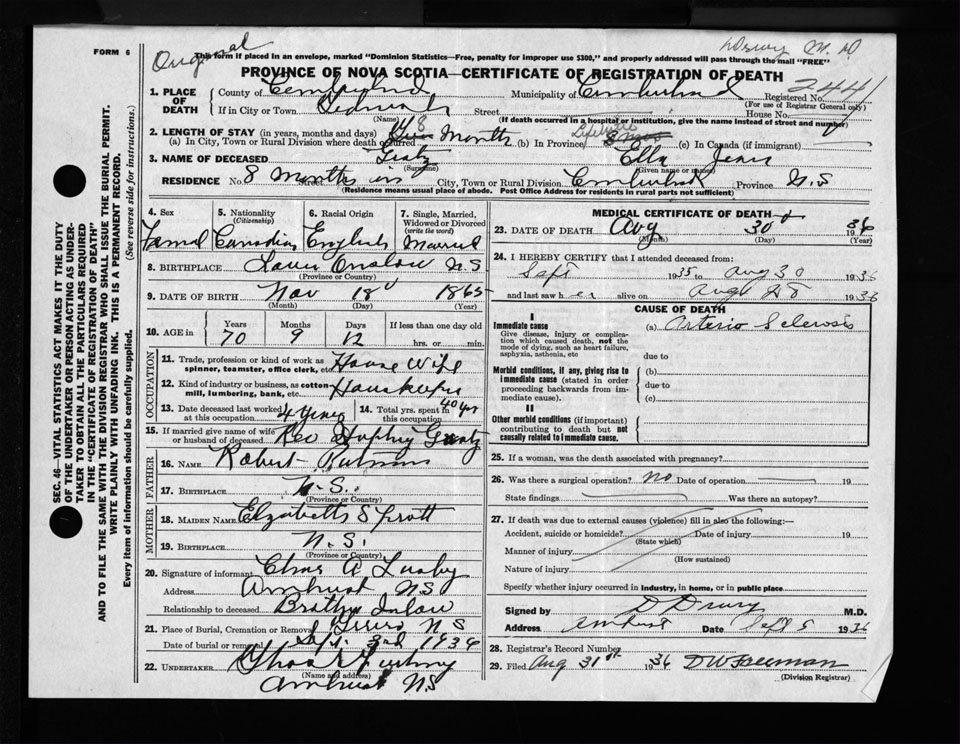 FORM 6
Original
Drury M. D
This form if placed in an envelope, marked "Dominion Statistics—Free, penalty for improper use $300," and properly addressed will pass through the mail "FREE"
PROVINCE OF NOVA SCOTIA—CERTIFICATE OF REGISTRATION OF DEATH
2441
1. PLACE OF DEATH County of Cumberland Municipality of Cumberland Registered No.
(For use of Registrar General only)
If in City or Town Street House No.
(Name) (If death occurred in a hospital or institution, give the name instead of street and number)
2. LENGTH OF STAY (in years, months and days)
(a) In City, Town or Rural Division where death occurred 8 Months (b) In Province Lifetime (c) In Canada (if immigrant)
3. NAME OF DECEASED Ella Jean
(Surname) (Given name or names)
RESIDENCE No. 8 Months in Street City, Town or Rural Division Cumberland Province N.S
(Residence means usual place of abode. Post Office Address for residents in rural parts not sufficient)
SEC. 46—VITAL STATISTICS ACT MAKES IT THE DUTY
OF THE UNDERTAKER OR PERSON ACTING AS UNDER-
TAKER TO OBTAIN ALL THE PARTICULARS REQUIRED
IN THE "CERTIFICATE OF REGISTRATION OF DEATH"
AND TO FILE THE SAME WITH THE DIVISION REGISTRAR WHO SHALL ISSUE THE BURIAL PERMIT.
WRITE PLAINLY WITH UNFADING INK. THIS IS A PERMANENT RECORD.
Every item of information should be carefully supplied. (See reverse side for instructions.)
4. Sex 5. Nationality (Citizenship) 6. Racial Origin 7. Single, Married, Widowed or Divorced (write the word)
Femal Canadian English Married
8. BIRTHPLACE Lower Onslow N S
(Province or Country)
9. DATE OF BIRTH Nov 18 1865
(Month) (Day) (Year)
10. AGE in Years Months Days If less than one day old
70 9 12 hrs. or min.
OCCUPATION
11. Trade, profession or kind of work as spinner, teamster, office clerk, etc. House Wife
12. Kind of industry or business, as cotton mill, lumbering, bank, etc.
13. Date deceased last worked at this occupation 14. Total yrs. spent in this occupation 40 yrs
15. If married give name of wife or husband of deceased Rev
FATHER
16. NAME Robert Putnam
17. BIRTHPLACE N.S.
(Province or Country)
MOTHER
18. MAIDEN NAME Elizabeth
19. BIRTHPLACE N.S.
(Province or Country)
20. Signature of informant Chas A Lusby
Address Amherst NS
Relationship to deceased Brother Inlaw
21. Place of Burial, Cremation or Removal Truro N S
Date of burial or removal Sept. 3rd 1936
22. UNDERTAKER
(Name and address)
Amherst NS
MEDICAL CERTIFICATE OF DEATH
23. DATE OF DEATH Aug 30 1936
(Month) (Day) (Year)
24. I HEREBY CERTIFY that I attended deceased from:
Sept 1935 to Aug 30 1936
and last saw her alive on Aug 28 1936
CAUSE OF DEATH
I
Immediate cause (a) Arterio Sclerosis
Give disease, injury or complication which caused death, not the mode of dying, such as heart failure, asphyxia, asthenia, etc
due to
Morbid conditions, if any, giving rise to immediate cause (stated in order proceeding backwards from immediate cause).
(b)
due to
(c)
II
Other morbid conditions (if important) contributing to death but not causally related to immediate cause.
25. If a woman, was the death associated with pregnancy?
26. Was there a surgical operation? No Date of operation 19
State findings Was there an autopsy?
27. If death was due to external causes (violence) fill in also the following:—
Accident, suicide or homicide? Date of injury 19
(State which)
Manner of injury
(How sustained)
Nature of injury
Specify whether injury occurred in industry, in home, or in public place
Signed by D Drury M.D.
Address Amherst Date Sept 5 1936
28. Registrar's Record Number
29. Filed Aug 31st 1936 D W Freeman
(Division Registrar)